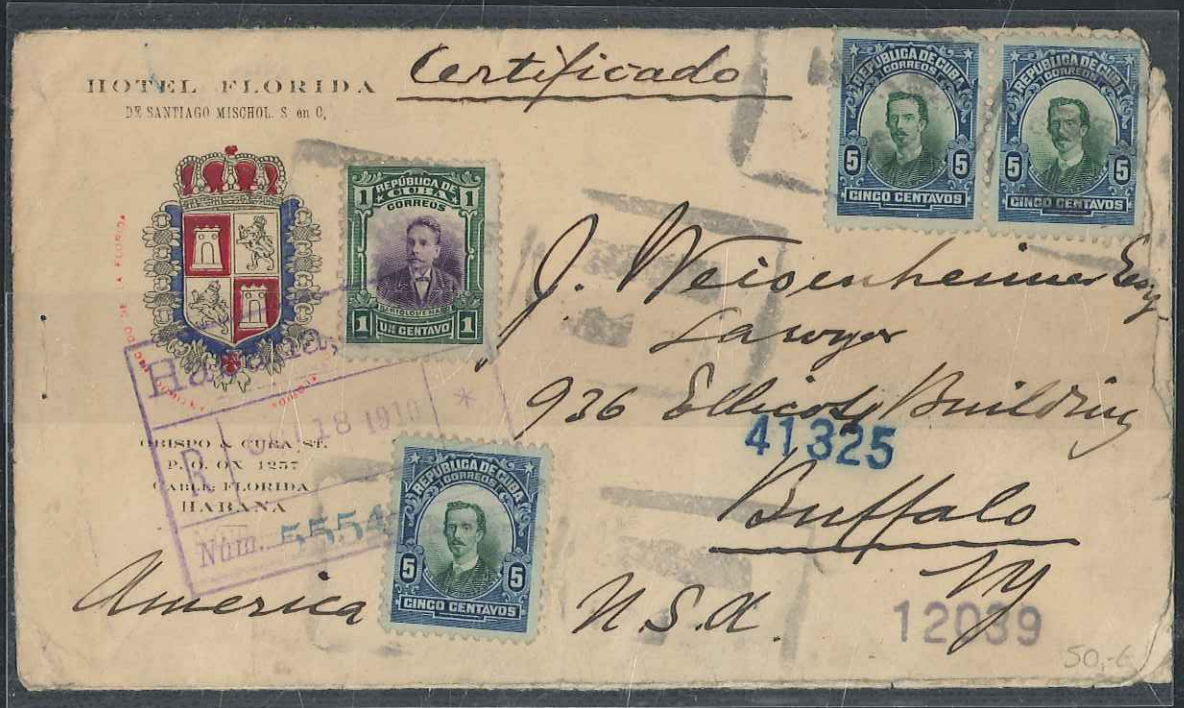 HOTEL FLORIDA
DE SANTIAGO MISCHOL. S en C,
Certificado
REPUBLICA DE CUBA
CORREOS
5 5
CINCO CENTAVOS
REPUBLICA DE CUBA
CORREOS
5 5
CINCO CENTAVOS
REPÚBLICA DE
CUBA
CORREOS
1 1
BARTOLOMÉ MASÓ
1 UN CENTAVO 1
J. Weisenheimer Esq
Lawyer
936 Ellicott Building
41325
Buffalo
NY
Habana,
18 1910 *
R
Núm. 5554
OBISPO & CUBA ST.
P. O. OX 1257
CABLE: FLORIDA
HABANA
REPUBLICA DE CUBA
CORREOS
5 5
CINCO CENTAVOS
America U.S.A.
12039
50,-€